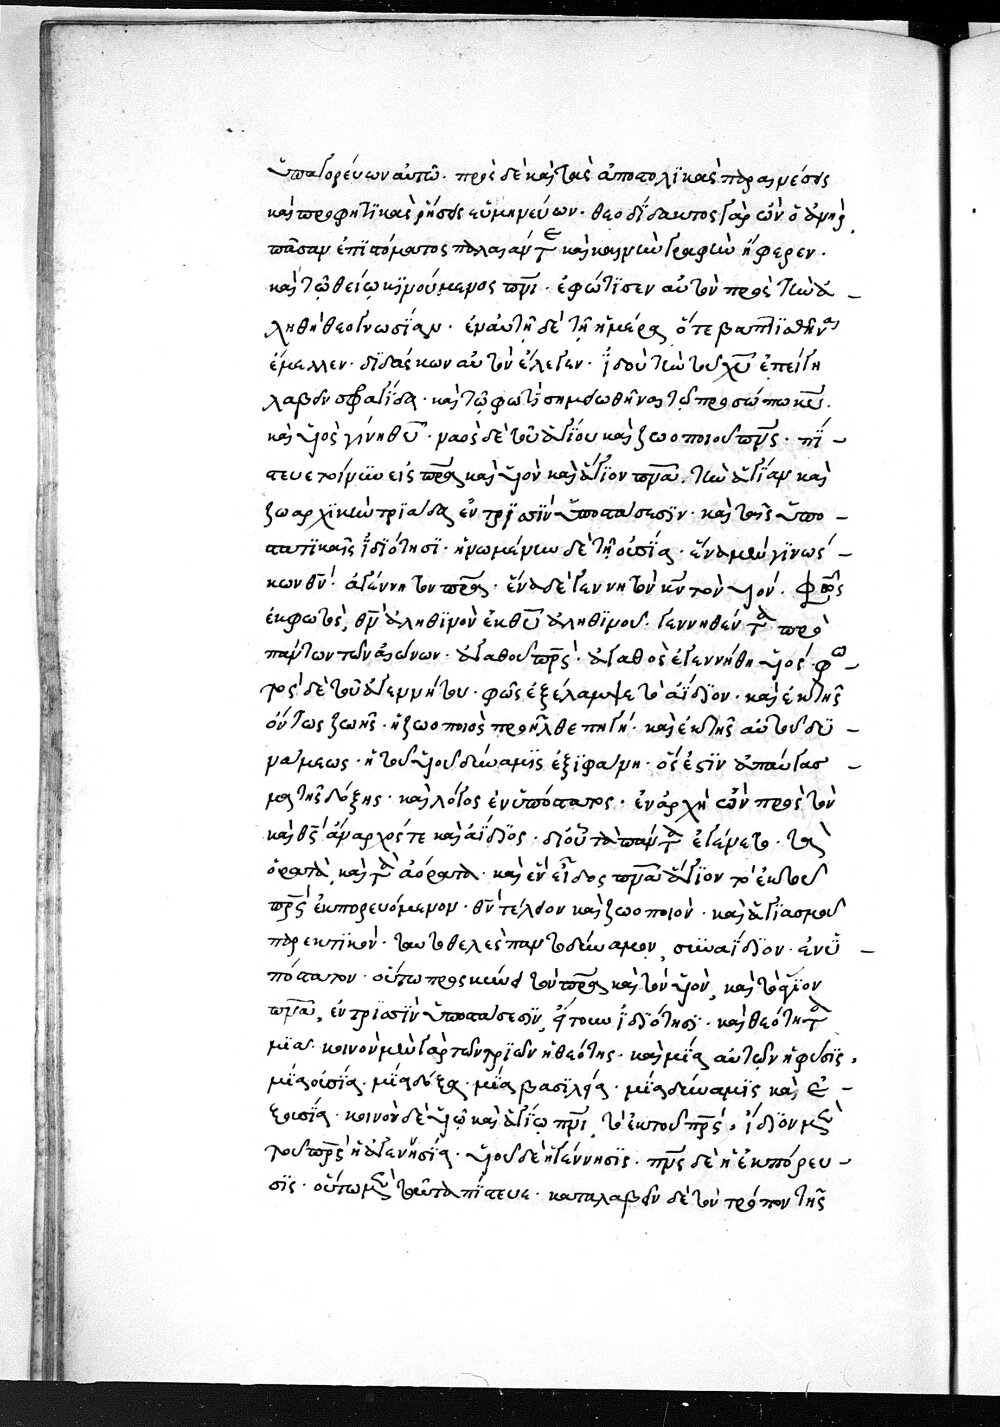 ὑπαγορέυων αὐτῶ· πρὸς δὲ καὶ τὰς ἀποστολϊκὰς παραινέσεις
καὶ προφητϊκὰς ῥήσεις ἑρμηνεύων· θεοδΐδακτος γὰρ ὢν ὁ ἀνὴρ
πᾶσαν ἐπϊστόματος παλαιάν τε καὶ καινὴν γραφὴν ἤφερεν·
καὶ τῶ θείω κϊνούμενος πνι· ἐφώτϊσεν αὐτὸν πρὸς τὴν ἀ –
ληθῆ θεογνωσΐαν· ἐν αὐτῆ δὲ τῆ ἡμέρα ὅτε βαπτϊσθῆναι
ἔμελλεν· δϊδάσκων αὐτὸν ἔλεγεν· ἰδοὺ τὴν τοῦ χυ ἐπείγη
λαβεῖν σφραγίδα· καὶ τῶ φωτὶ σημειωθῆναι τοῦ προσώπου κυ·
καὶ υἱὸς γίνη θυ· ναὸς δὲ τοῦ ἁγΐου καὶ ζωοποιοῦ πνς· πΐ –
στευε τοίνϋν εἰς πρα καὶ υἱὸν καὶ ἅγϊον πνα· τὴν ἁγΐαν καὶ
ζωαρχϊκὴν τρϊάδα ἐν τρϊσὶν ὑποστάσεσϊν· καὶ ταῖς ὑπο –
στατϊκαῖς ἰδϊότησϊ· ἡνωμένην δὲ τῆ οὐσΐα· ἕνα μὲν γϊνώσ –
κων θν· ἀγέννητον πρα· ἕνα δὲ γεννητὸν κν τὸν υἱόν· φῶς
ἐκ φωτὸς, θν ἀληθϊνὸν ἐκ θυ ἀληθϊνοῦ· γεννηθέντα πρὸ
πάντων τῶν αἰώνων· ἀγαθοῦ πρς· ἀγαθὸς ἐγεννήθη υἱός· φω –
τὸς δὲ τοῦ ἀγεννήτου· φῶς ἐξέλαμψε τὸ ἀΐδϊον· καὶ ἐκ τῆς
ὄντως ζωῆς· ἡ ζωοποιὸς προῆλθε πηγή· καὶ ἐκ τῆς αὐτοδϋ –
νάμεως· ἡ τοῦ υἱοῦ δύναμϊς ἐξϊφάνη· ὅς ἐστϊν ἀπαύγασ –
μα τῆς δόξης· καὶ λόγος ἐνϋπόστατος· ἐν ἀρχῆ ὢν πρὸς τὸν
καὶ θς ἄναρχός τε καὶ ἀΐδϊος· δϊ οὗ τὰ πάντα ἐγένετο· τὰ
ὁρατὰ, καὶ τὰ ἀόρατα· καὶ ἓν εἶδος πνα ἅγϊον τὸ ἐκ τοῦ
πρς ἐκπορευόμενον· θν τέλειον καὶ ζωοποιὸν· καὶ ἁγϊασμοῦ
παρεκτϊκόν· ταυτοθελὲς παντοδύναμον, σϋναΐδϊον· ἐνϋ –
πόστατον· οὕτω προσκύνει τὸν πρα καὶ τὸν υἱὸν, καὶ τὸ ἅγϊον
πνα, ἐν τρϊσὶν ὑποστάσεσϊν, ἤτουν ἰδϊότησϊ· καὶ θεότητα
μΐαν· κοινὸν μὲν γὰρ τῶν τρϊῶν ἡ θεότης· καὶ μΐα αὐτῶν ἡ φύσϊς·
μΐα οὐσία· μΐα δόξα· μΐα βασϊλεία· μΐα δύναμϊς καὶ ἐ –
ξουσία· κοινὸν δὲ υἱῶ καὶ ἁγΐω πνι, τὸ ἐκ τοῦ πρς· ἴδϊον μὲν
τοῦ πρς ἡ ἀγεννησΐα· υἱοῦ δὲ ἡ γέννησϊς· πνς δὲ ἡ ἐκπόρευ –
σϊς· οὕτω μὲν ταῦτα πΐστευε· καταλαβεῖν δὲ τὸν τρόπον τῆς